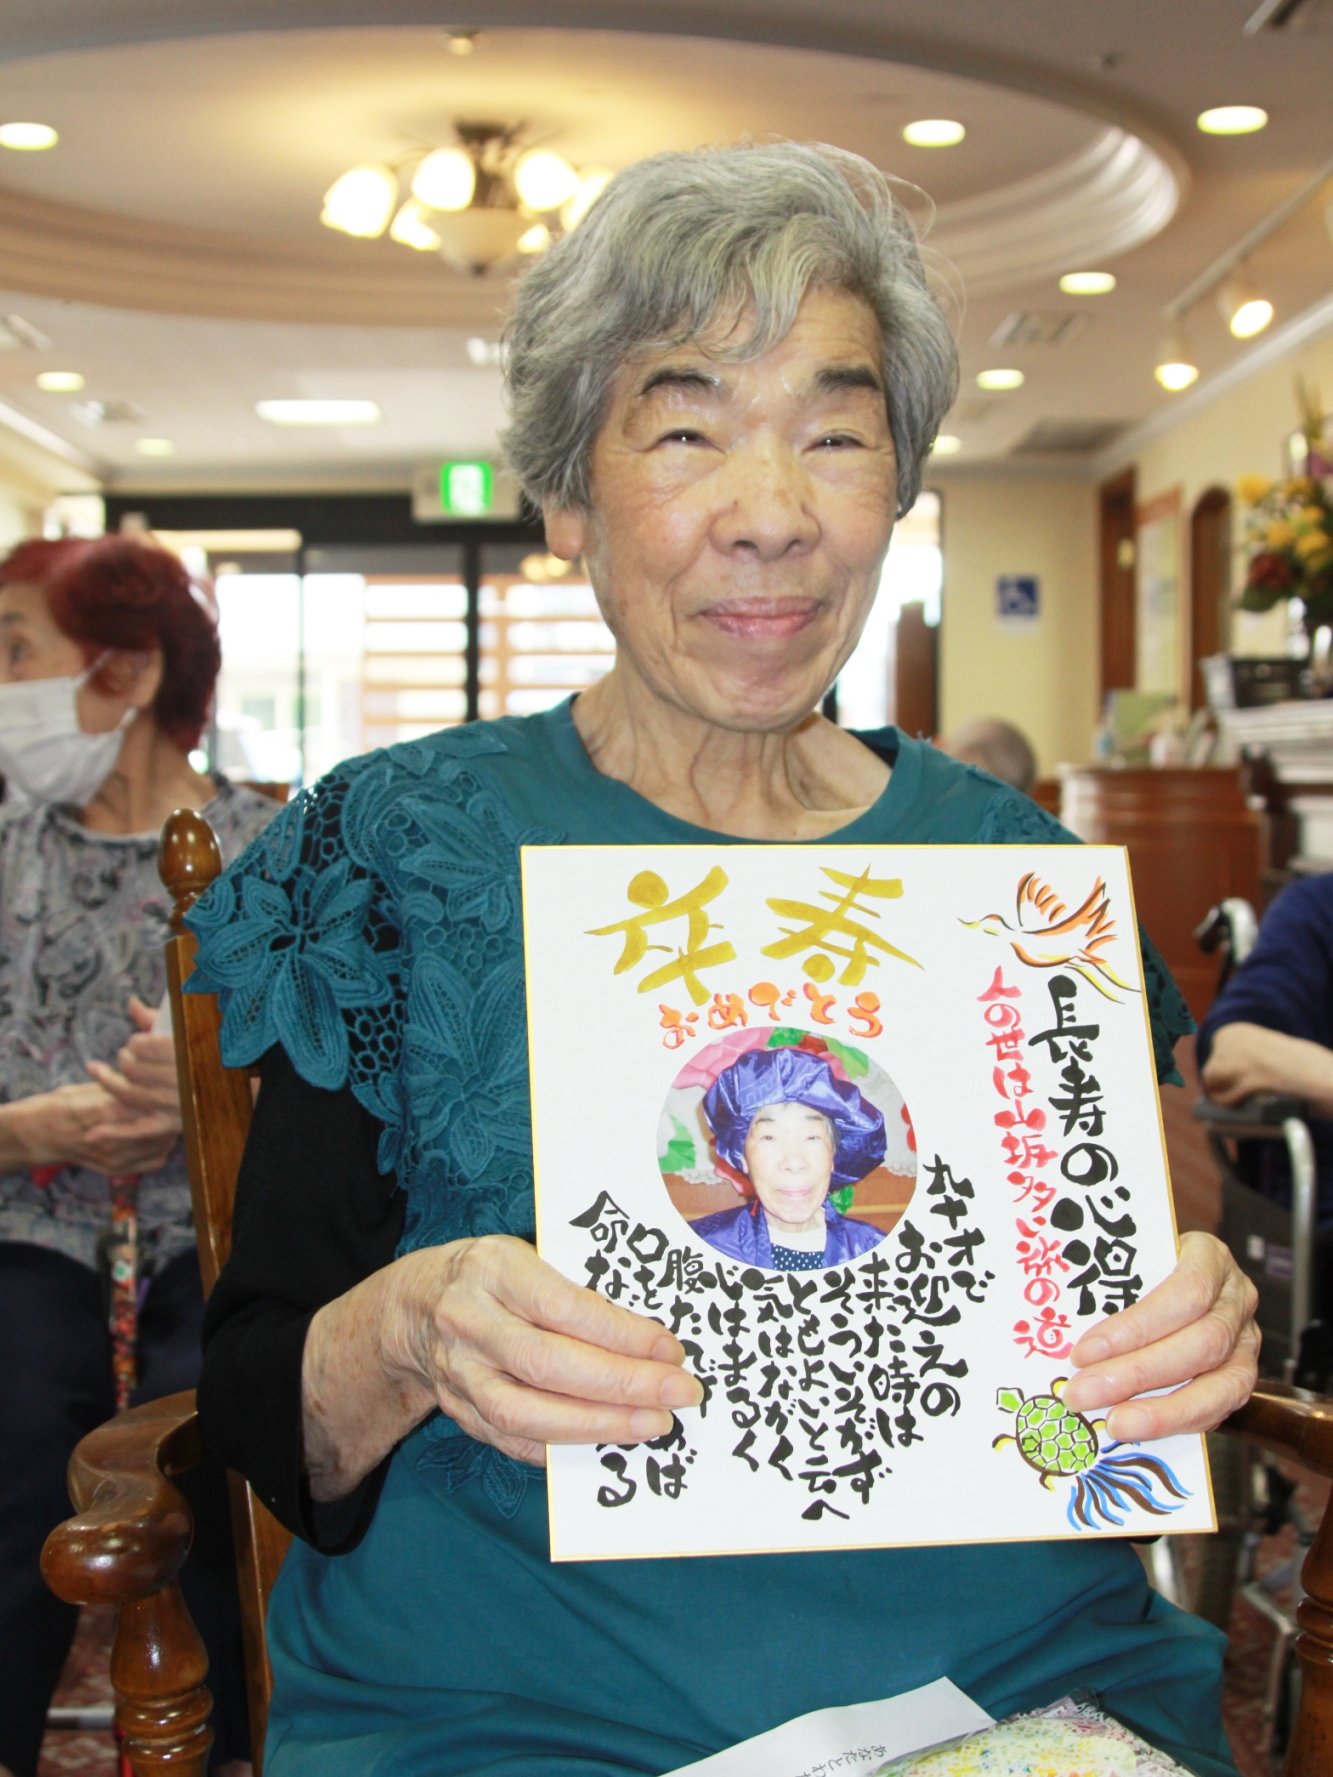 卒寿
おめでとう
長寿の心得
人の世は山坂多い旅の道
九十才で
お迎えの
来た時は
そういそがず
ともよいと云へ
気はながく
心はまるく
腹たてず
口を
命な
れば
る